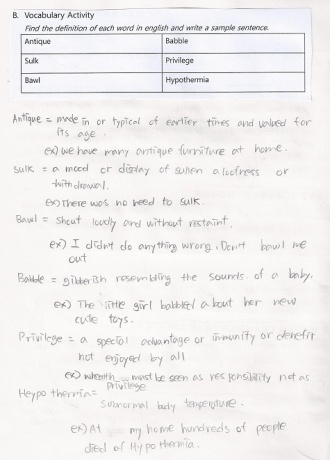 B. Vocabulary Activity
Find the definition of each word in english and write a sample sentence.
Antique Babble
Sulk Privilege
Bawl Hypothermia
Antique = made in or typical of earlier times and valued for
its age.
ex) we have many antique furniture at home.
Sulk = a mood or display of sullen aloofness or
withdrawal.
ex) There was no need to sulk.
Bawl = shout loudly and without restraint.
ex) I didn't do anything wrong. Don't bawl me
out
Babble = gibberish resembling the sounds of a baby.
ex) The little girl babbled about her new
cute toys.
Privilege = a special advantage or immunity or benefit
not enjoyed by all
ex) wealth must be seen as responsibility not as
privilege
Heypo thermia =
Subnormal body temperature.
ex) At my home hundreds of people
died of Hypo thermia.